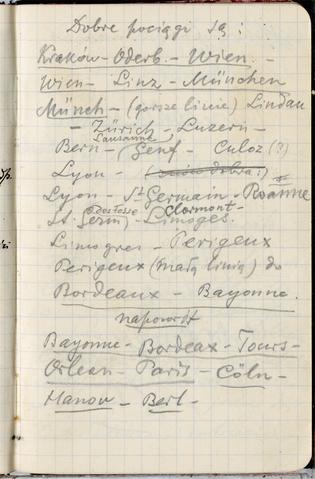 Dobre pociągi są:
Kraków - Oderb. - Wien -
Wien - Linz - München
Münch - (gorsze linie) Lindau
- Zürich - Luzern -
Lausanne
Bern - (Genf - Culoz (?)
Lyon -
Lyon - St Germain - Roanne
St. Germ) - Clermont - Limoges.
Limoges - Perigeux
Perigeux (małą linią) do
Bordeaux - Bayonne.
napowrót
Bayonne - Bordeax - Tours -
Orlean - Paris - Cöln -
Hanow - Berl -